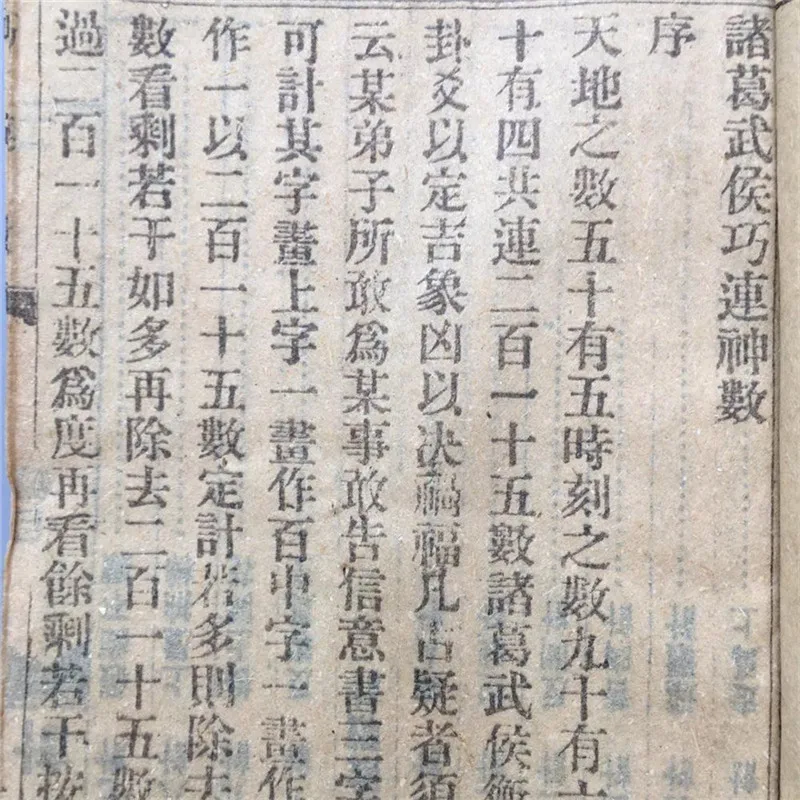 諸葛武侯巧連神數
序
天地之數五十有五時刻之數九十有六
十有四共連二百一十五數諸葛武侯
卦爻以定吉象凶以决禍福凡占疑者須
云某弟子所敢爲某事敢告信意書三字
可計其字畫上字一畫作百中字一畫作
作一以二百一十五數定計若多則除去
數看剩若干如多再除去二百一十五數
過二百一十五數爲度再看餘剩若干按